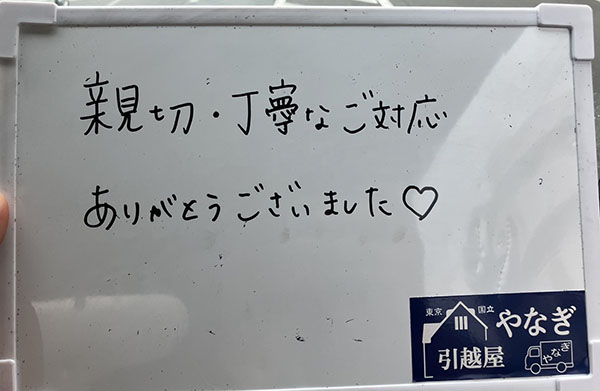 親切・丁寧なご対応
ありがとうございました♡
東京 国立
やなぎ
引越屋
やなぎ